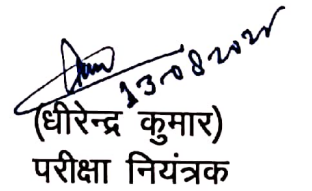 13-08-202
(धीरेन्द्र कुमार)
परीक्षा नियंत्रक